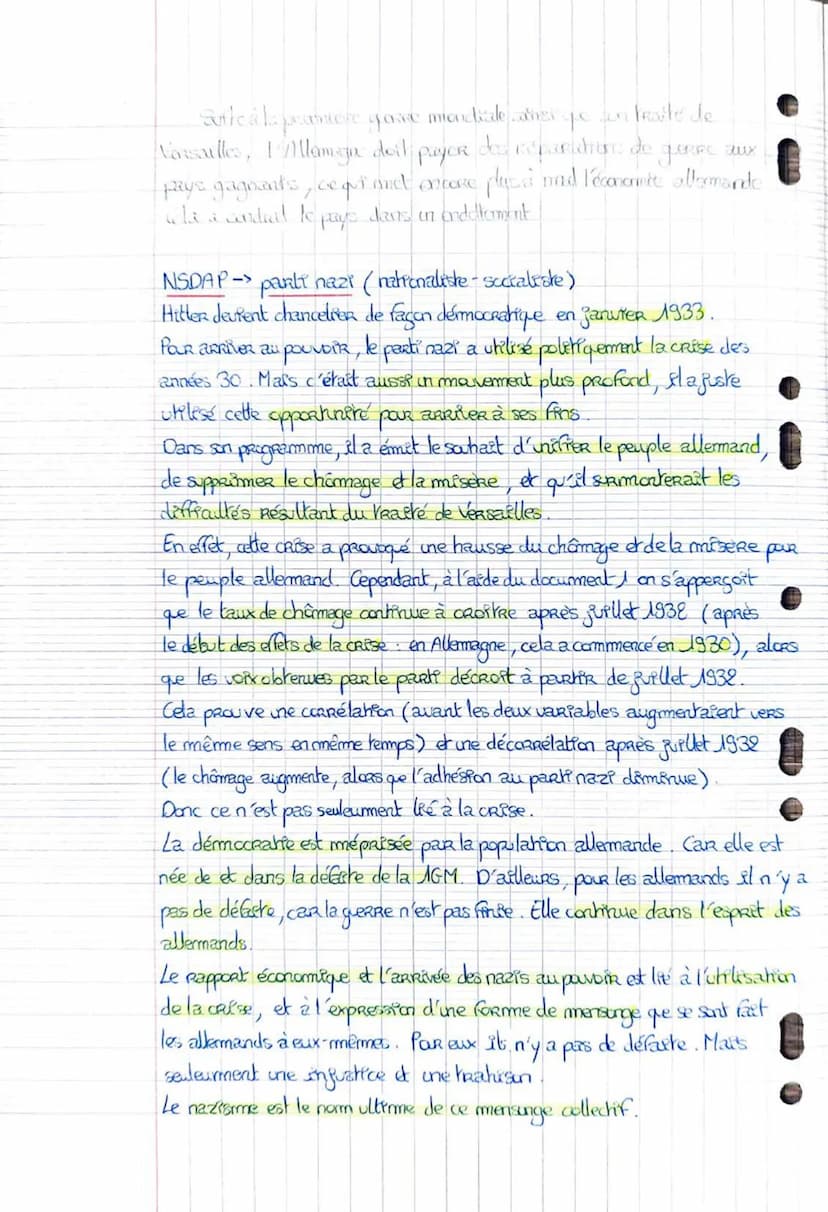 Suite à la première guerre mondiale ainsi que un traité de
Versailles, l'Allemagne doit payer des réparations de guerre aux
pays gagnants, ce qui met encore plus à mal l'économie allemande
cela a conduit le pays dans un endettement
NSDAP -> parti nazi (nationaliste - socialiste)
Hitler devient chancelier de façon démocratique en janvier 1933.
Pour arriver au pouvoir, le parti nazi a utilisé politiquement la crise des
années 30. Mais c'était aussi un mouvement plus profond, il a juste
utilisé cette opportunité pour arriver à ses fins.
Dans son programme, il a émet le souhait d'unifier le peuple allemand,
de supprimer le chômage et la misère, et qu'il surmonterait les
difficultés résultant du traité de Versailles.
En effet, cette crise a provoqué une hausse du chômage et de la misère pour
le peuple allemand. Cependant, à l'aide du document 1 on s'apperçoit
que le taux de chômage continue à croître après juillet 1932 (après
le début des effets de la crise : en Allemagne, cela a commencé en 1930), alors
que les voix obtenues par le parti décroit à partir de juillet 1932.
Cela prouve une corrélation (avant les deux variables augmentaient vers
le même sens en même temps) et une décorrélation après juillet 1932
(le chômage augmente, alors que l'adhésion au parti nazi diminue).
Donc ce n'est pas seulement lié à la crise.
La démocratie est méprisée par la population allemande. Car elle est
née de et dans la défaite de la 1GM. D'ailleurs, pour les allemands il n'y a
pas de défaite, car la guerre n'est pas finie. Elle continue dans l'esprit des
allemands.
Le rapport économique et l'arrivée des nazis au pouvoir est lié à l'utilisation
de la crise, et à l'expression d'une forme de mensonge que se sont fait
les allemands à eux-mêmes. Pour eux il n'y a pas de défaite. Mais
seulement une injustice et une trahison.
Le nazisme est le nom ultime de ce mensonge collectif.